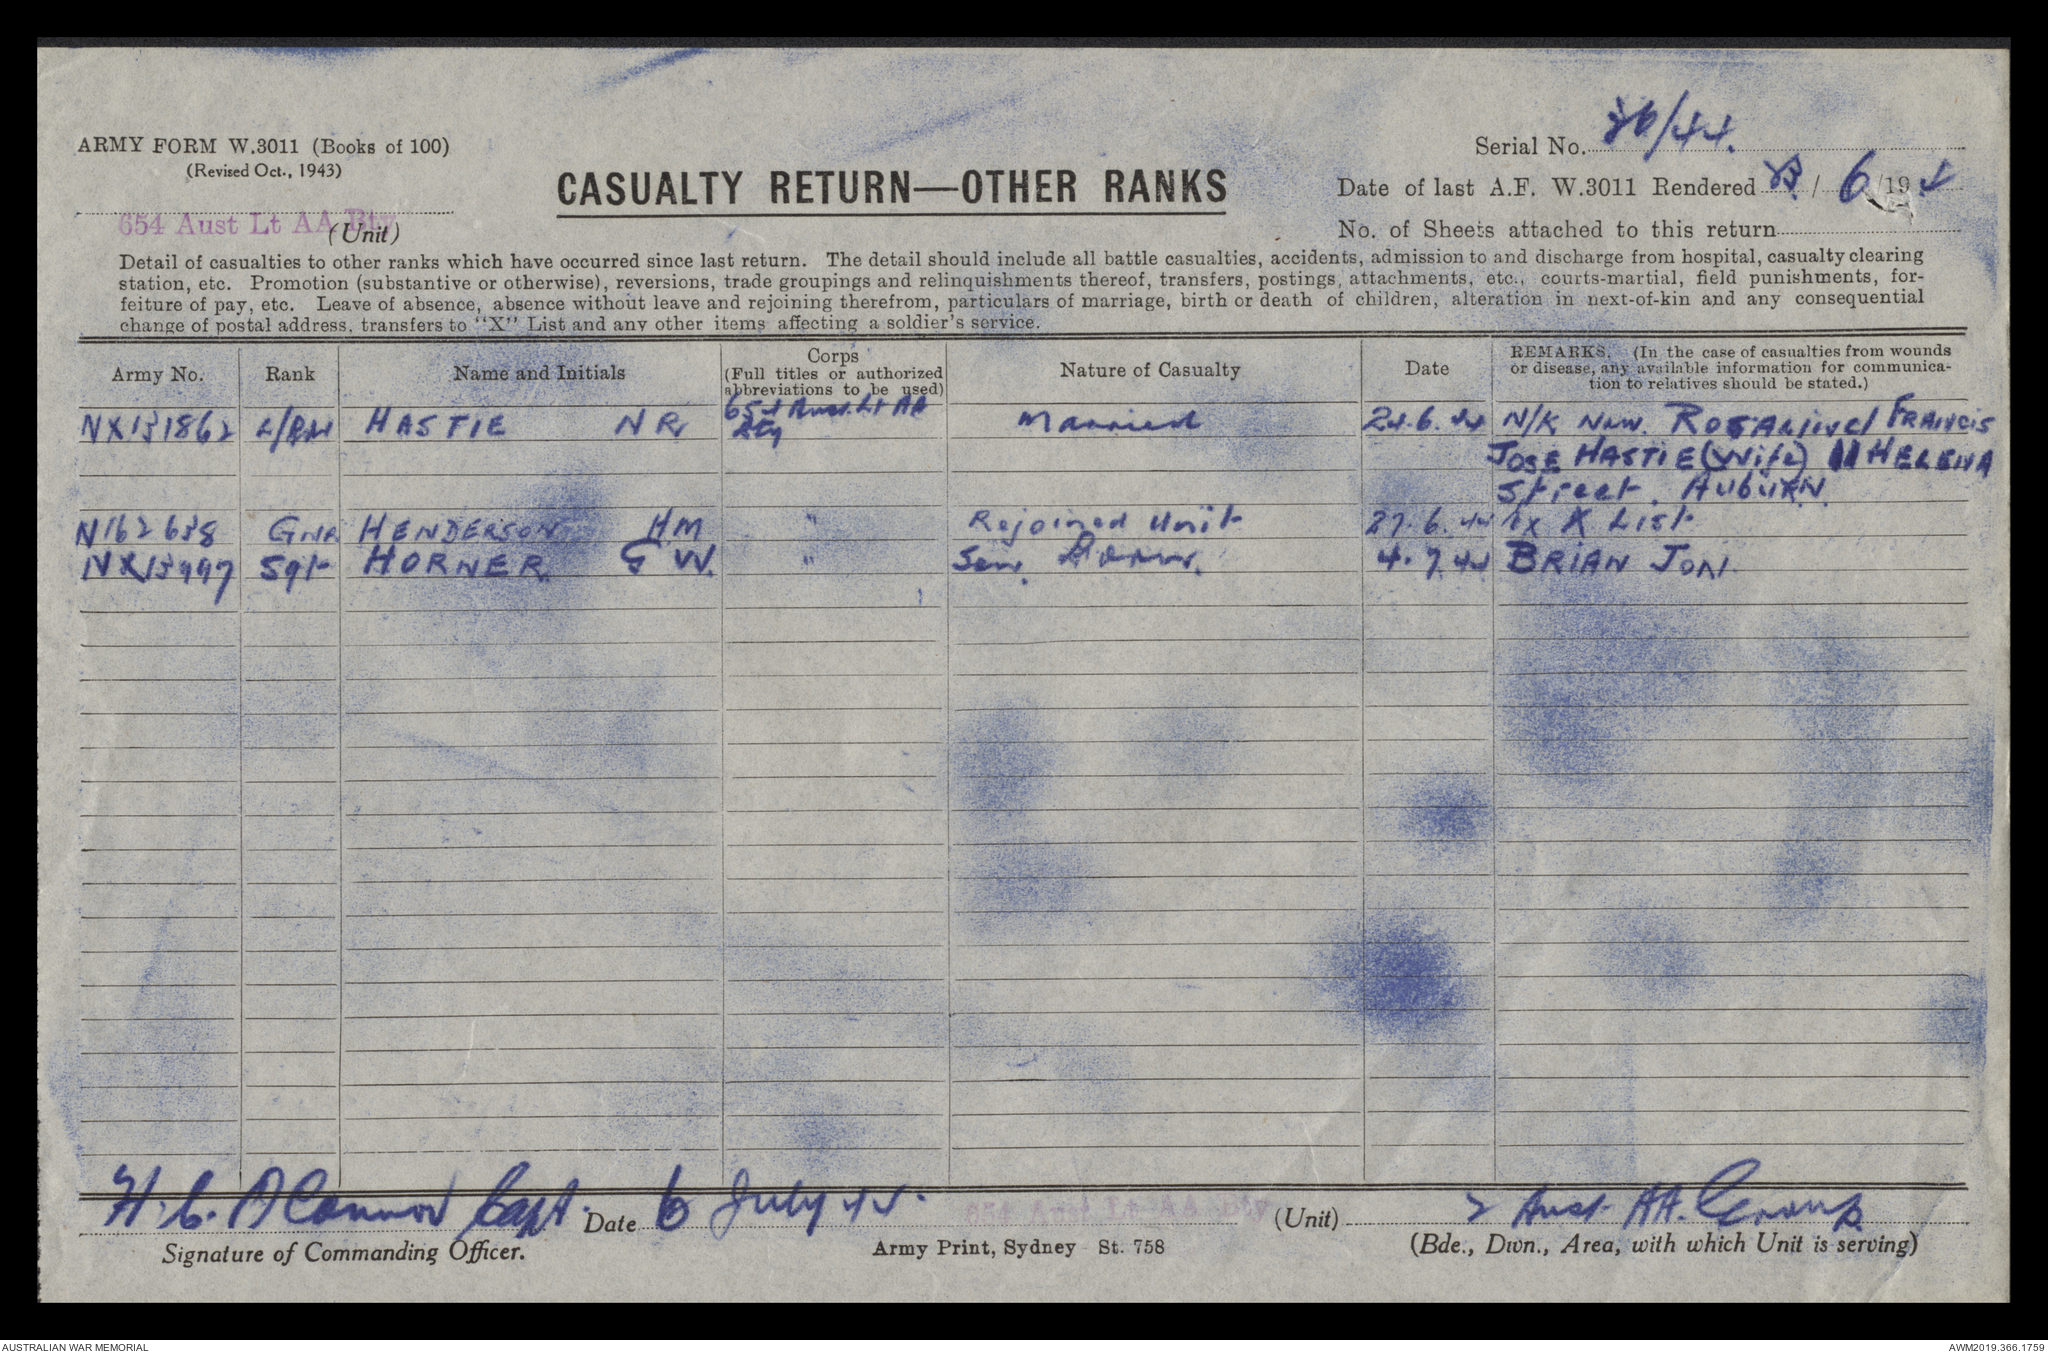 ARMY FORM W.3011 (Books of 100)
(Revised Oct., 1943)
654 Aust Lt AA Bty
(Unit)
CASUALTY RETURN—OTHER RANKS
Serial No. 26/44.
Date of last A.F. W.3011 Rendered / 6/194
No. of Sheets attached to this return
Detail of casualties to other ranks which have occurred since last return. The detail should include all battle casualties, accidents, admission to and discharge from hospital, casualty clearing
station, etc. Promotion (substantive or otherwise), reversions, trade groupings and relinquishments thereof, transfers, postings, attachments, etc., courts-martial, field punishments, for-
feiture of pay, etc. Leave of absence, absence without leave and rejoining therefrom, particulars of marriage, birth or death of children, alteration in next-of-kin and any consequential
change of postal address, transfers to "X" List and any other items affecting a soldier's service.
Army No. Rank Name and Initials Corps (Full titles or authorized abbreviations to be used) Nature of Casualty Date REMARKS. (In the case of casualties from wounds or disease, any available information for communication to relatives should be stated.)
NX131862 L/Bdr HASTIE N R. 654 Aust. Lt AA Bty Married 24.6.44 N/K Now. FRANCIS
JOSE HASTIE (Wife) 11 HELENA
Street. AUBURN.
N162638 GNR HENDERSON HM " Rejoined Unit 27.6.44 Ex X List
NX13997 Sgt HORNER. G W. " Son Born. 4.7.44 BRIAN JON.
H.C. O'Connor Capt. Date 6 July 44. 654 Aust Lt AA Bty (Unit) 2 Aust. AA. Group.
Signature of Commanding Officer. Army Print, Sydney St. 758 (Bde., Divn., Area, with which Unit is serving)
AUSTRALIAN WAR MEMORIAL AWM2019.366.1759